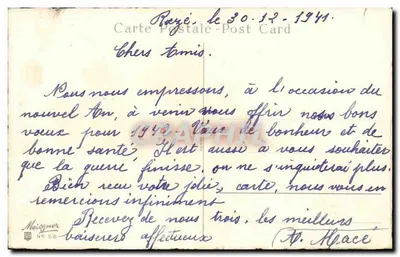 Rezé, le 30-12-1941.
Carte Postale - Post Card
Chers Amis.
Nous nous empressons, à l'occasion du
nouvel An, à venir vous offrir nos bons
vœux pour 1942. Vœux de bonheur et de
bonne santé, Il est aussi à vous souhaiter
que la guerre finisse, on ne s'inquiéterai plus.
Bien reçu votre jolie, carte, nous vous en
remercions infiniment
Recevez de nous trois, les meilleurs
baisers affectueux A. Macé